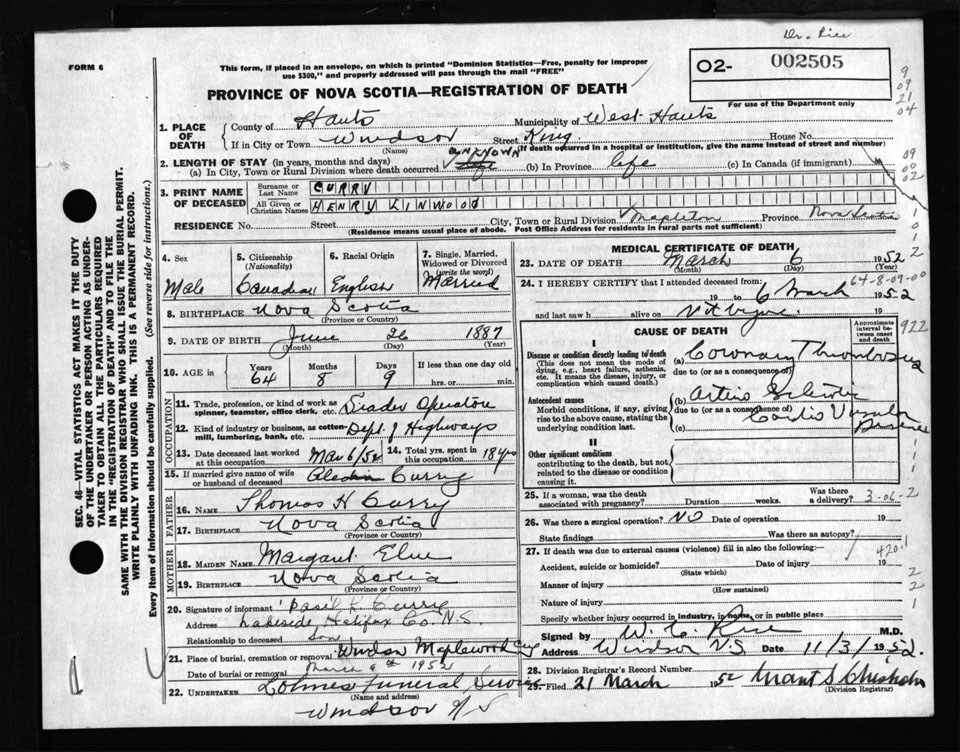 Dr. Rice
FORM 6
This form, if placed in an envelope, on which is printed "Dominion Statistics—Free, penalty for improper
use $300," and properly addressed will pass through the mail "FREE"
02- 002505
PROVINCE OF NOVA SCOTIA—REGISTRATION OF DEATH
For use of the Department only
9
09
21
04
1. PLACE OF DEATH
County of Hants Municipality of West Hants
If in City or Town Windsor Street King House No.
(Name) If death occurred in a hospital or institution, give the name instead of street and number)
2. LENGTH OF STAY (in years, months and days) UNKNOWN
(a) In City, Town or Rural Division where death occurred life (b) In Province life (c) In Canada (if immigrant)
09
00
02
3. PRINT NAME OF DECEASED
Surname or Last Name CURRY
All Given or Christian Names HENRY LINWOOD
RESIDENCE No. Street City, Town or Rural Division Mapleton Province Nova Scotia
(Residence means usual place of abode. Post Office Address for residents in rural parts not sufficient)
4. Sex Male
5. Citizenship (Nationality) Canadian
6. Racial Origin English
7. Single, Married, Widowed or Divorced (write the word) Married
8. BIRTHPLACE Nova Scotia
(Province or Country)
9. DATE OF BIRTH June 26 1887
(Month) (Day) (Year)
10. AGE in Years 64 Months 8 Days 9 If less than one day old
hrs. or min.
OCCUPATION
11. Trade, profession, or kind of work as spinner, teamster, office clerk, etc. Grader Operator
12. Kind of industry or business, as cotton-mill, lumbering, bank, etc. Dept. of Highways
13. Date deceased last worked at this occupation Mar 6/52 14. Total yrs. spent in this occupation 18 yrs
15. If married give name of wife or husband of deceased Curry
FATHER
16. NAME Thomas H Curry
17. BIRTHPLACE Nova Scotia
(Province or Country)
MOTHER
18. MAIDEN NAME Margaret
19. BIRTHPLACE Nova Scotia
(Province or Country)
20. Signature of informant Basil L. Curry
Address Lakeside, Halifax Co. N.S.
Relationship to deceased son
21. Place of burial, cremation or removal Windsor Maplewood Cey
Date of burial or removal March 9th 1952
22. UNDERTAKER Lohnes Funeral Service
(Name and address)
Windsor N S
MEDICAL CERTIFICATE OF DEATH
23. DATE OF DEATH March 6 1952
(Month) (Day) (Year)
64-8-09-00
24. I HEREBY CERTIFY that I attended deceased from:
19 to 6 March 1952
and last saw h alive on 19
922
CAUSE OF DEATH
Approximate interval between onset and death
I
Disease or condition directly leading to death (a) Coronary Thrombosis
(This does not mean the mode of dying, e.g., heart failure, asthenia, etc. It means the disease, injury, or complication which caused death.)
due to (or as a consequence of)
Antecedent causes (b) Arterio Sclerotic
Morbid conditions, if any, giving rise to the above cause, stating the underlying condition last.
due to (or as a consequence of)
(c) Cardio Vascular Disease
II
Other significant conditions
contributing to the death, but not related to the disease or condition causing it.
25. If a woman, was the death associated with pregnancy? Duration weeks. Was there a delivery? 3-06-2
26. Was there a surgical operation? NO Date of operation 19
State findings Was there an autopsy?
27. If death was due to external causes (violence) fill in also the following:— 420.1
Accident, suicide or homicide? Date of injury 19
(State which)
Manner of injury
(How sustained)
Nature of injury
Specify whether injury occurred in industry, in home, or in public place
Signed by W. C. Rice M.D.
Address Windsor N.S. Date 11/3/1952.
28. Division Registrar's Record Number
29. Filed 21 March 1952 Grant S Chisholm
(Division Registrar)
SEC. 46—VITAL STATISTICS ACT MAKES IT THE DUTY
OF THE UNDERTAKER OR PERSON ACTING AS UNDER-
TAKER TO OBTAIN ALL THE PARTICULARS REQUIRED
IN THE "REGISTRATION OF DEATH" AND TO FILE THE
SAME WITH THE DIVISION REGISTRAR WHO SHALL ISSUE THE BURIAL PERMIT.
WRITE PLAINLY WITH UNFADING INK. THIS IS A PERMANENT RECORD.
Every item of information should be carefully supplied. (See reverse side for instructions.)